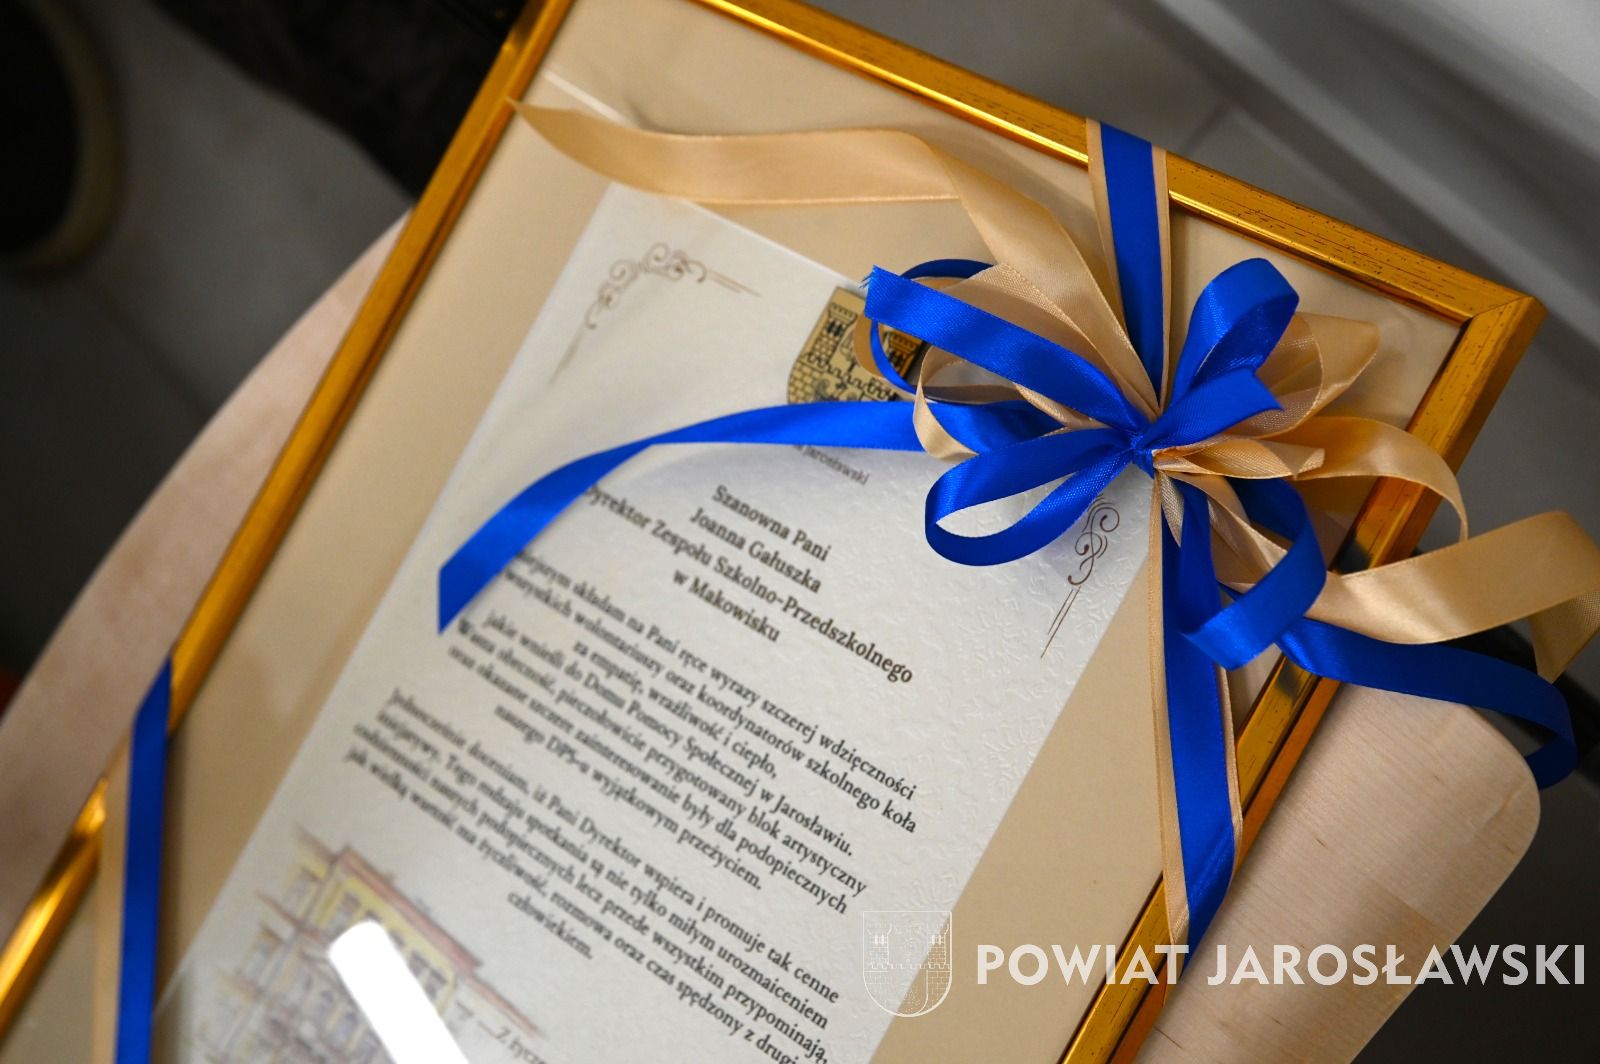 Jarosławski
Szanowna Pani
Joanna Gałuszka
Dyrektor Zespołu Szkolno-Przedszkolnego
w Makowisku
składam na Pani ręce wyrazy szczerej wdzięczności
wszystkich wolontariuszy oraz koordynatorów szkolnego koła
za empatię, wrażliwość i ciepło,
jakie wnieśli do Domu Pomocy Społecznej w Jarosławiu.
Wasza obecność, pieczołowicie przygotowany blok artystyczny
oraz okazane szczere zainteresowanie były dla podopiecznych
naszego DPS-u wyjątkowym przeżyciem.
Jednocześnie doceniam, iż Pani Dyrektor wspiera i promuje tak cenne
inicjatywy. Tego rodzaju spotkania są nie tylko miłym urozmaiceniem
codzienności naszych podopiecznych lecz przede wszystkim przypominają,
jak wielką wartość ma życzliwość, rozmowa oraz czas spędzony z drugi
człowiekiem.
Z życze
POWIAT JAROSŁAWSKI